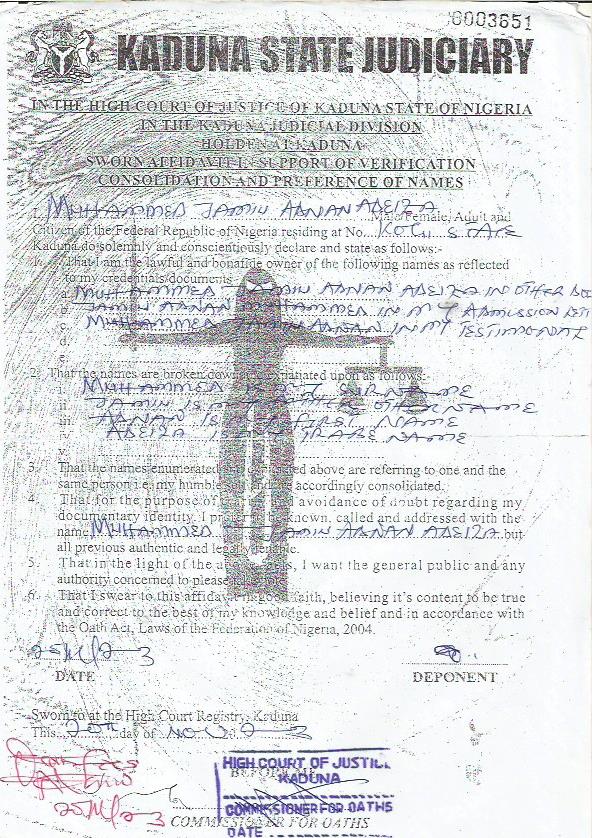 0003651
KADUNA STATE JUDICIARY
IN THE HIGH COURT OF JUSTICE OF KADUNA STATE OF NIGERIA
IN THE KADUNA JUDICIAL DIVISION
HOLDEN AT KADUNA
SWORN AFFIDAVIT IN SUPPORT OF VERIFICATION
CONSOLIDATION AND PREFERENCE OF NAMES
I, MUHAMMED JAMIU ADNAN ADEIZA Male/Female, Adult and
Citizen of the Federal Republic of Nigeria residing at No. KOGI STATE
Kaduna do solemnly and conscientiously declare and state as follows:-
1. That I am the lawful and bonafide owner of the following names as reflected
to my credentials/documents
a. MUHAMMED JAMIU ADNAN ADEIZA IN OTHER DOC
b. JAMIU ADNAN MUHAMMED IN MY ADMISSION LETT
c. MUHAMMED JAMIU ADNAN IN MY TESTIMONIAL
d.
e.
2. That the names are broken down as follows:-
i. MUHAMMED IS MY SURNAME
ii. JAMIU IS MY OTHER NAME
iii. ADNAN IS MY FIRST NAME
iv. ADEIZA IS MY TRABE NAME
v.
3. That the names enumerated above are referring to one and the
same person i.e. my humble self and are accordingly consolidated.
4. That for the purpose of and avoidance of doubt regarding my
documentary identity, I prefer to be known, called and addressed with the
name MUHAMMED JAMIU ADNAN ADEIZA but
all previous authentic and legally tenable.
5. That in the light of the above facts, I want the general public and any
authority concerned to please take note.
6. That I swear to this affidavit in good faith, believing it's content to be true
and correct to the best of my knowledge and belief and in accordance with
the Oath Act, Laws of the Federation of Nigeria, 2004.
DATE
DEPONENT
Sworn to at the High Court Registry, Kaduna
This 20th day of NOV 20 23
BEFORE ME
HIGH COURT OF JUSTIC
KADUNA
COMMISSIONER FOR OATHS
DATE
COMMISSIONER FOR OATHS